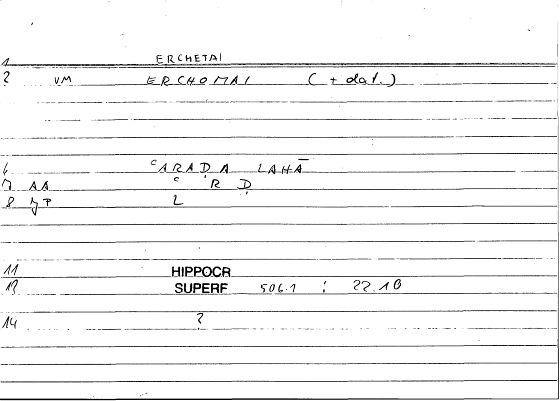 1 ERCHETAI
2 VM ERCHOMAI (+ dat.)
6 ʿARAḌA LAHĀ
7 AA ʿ R Ḍ
8 L
11 HIPPOCR
13 SUPERF 506.1 : 22.10
14 ?